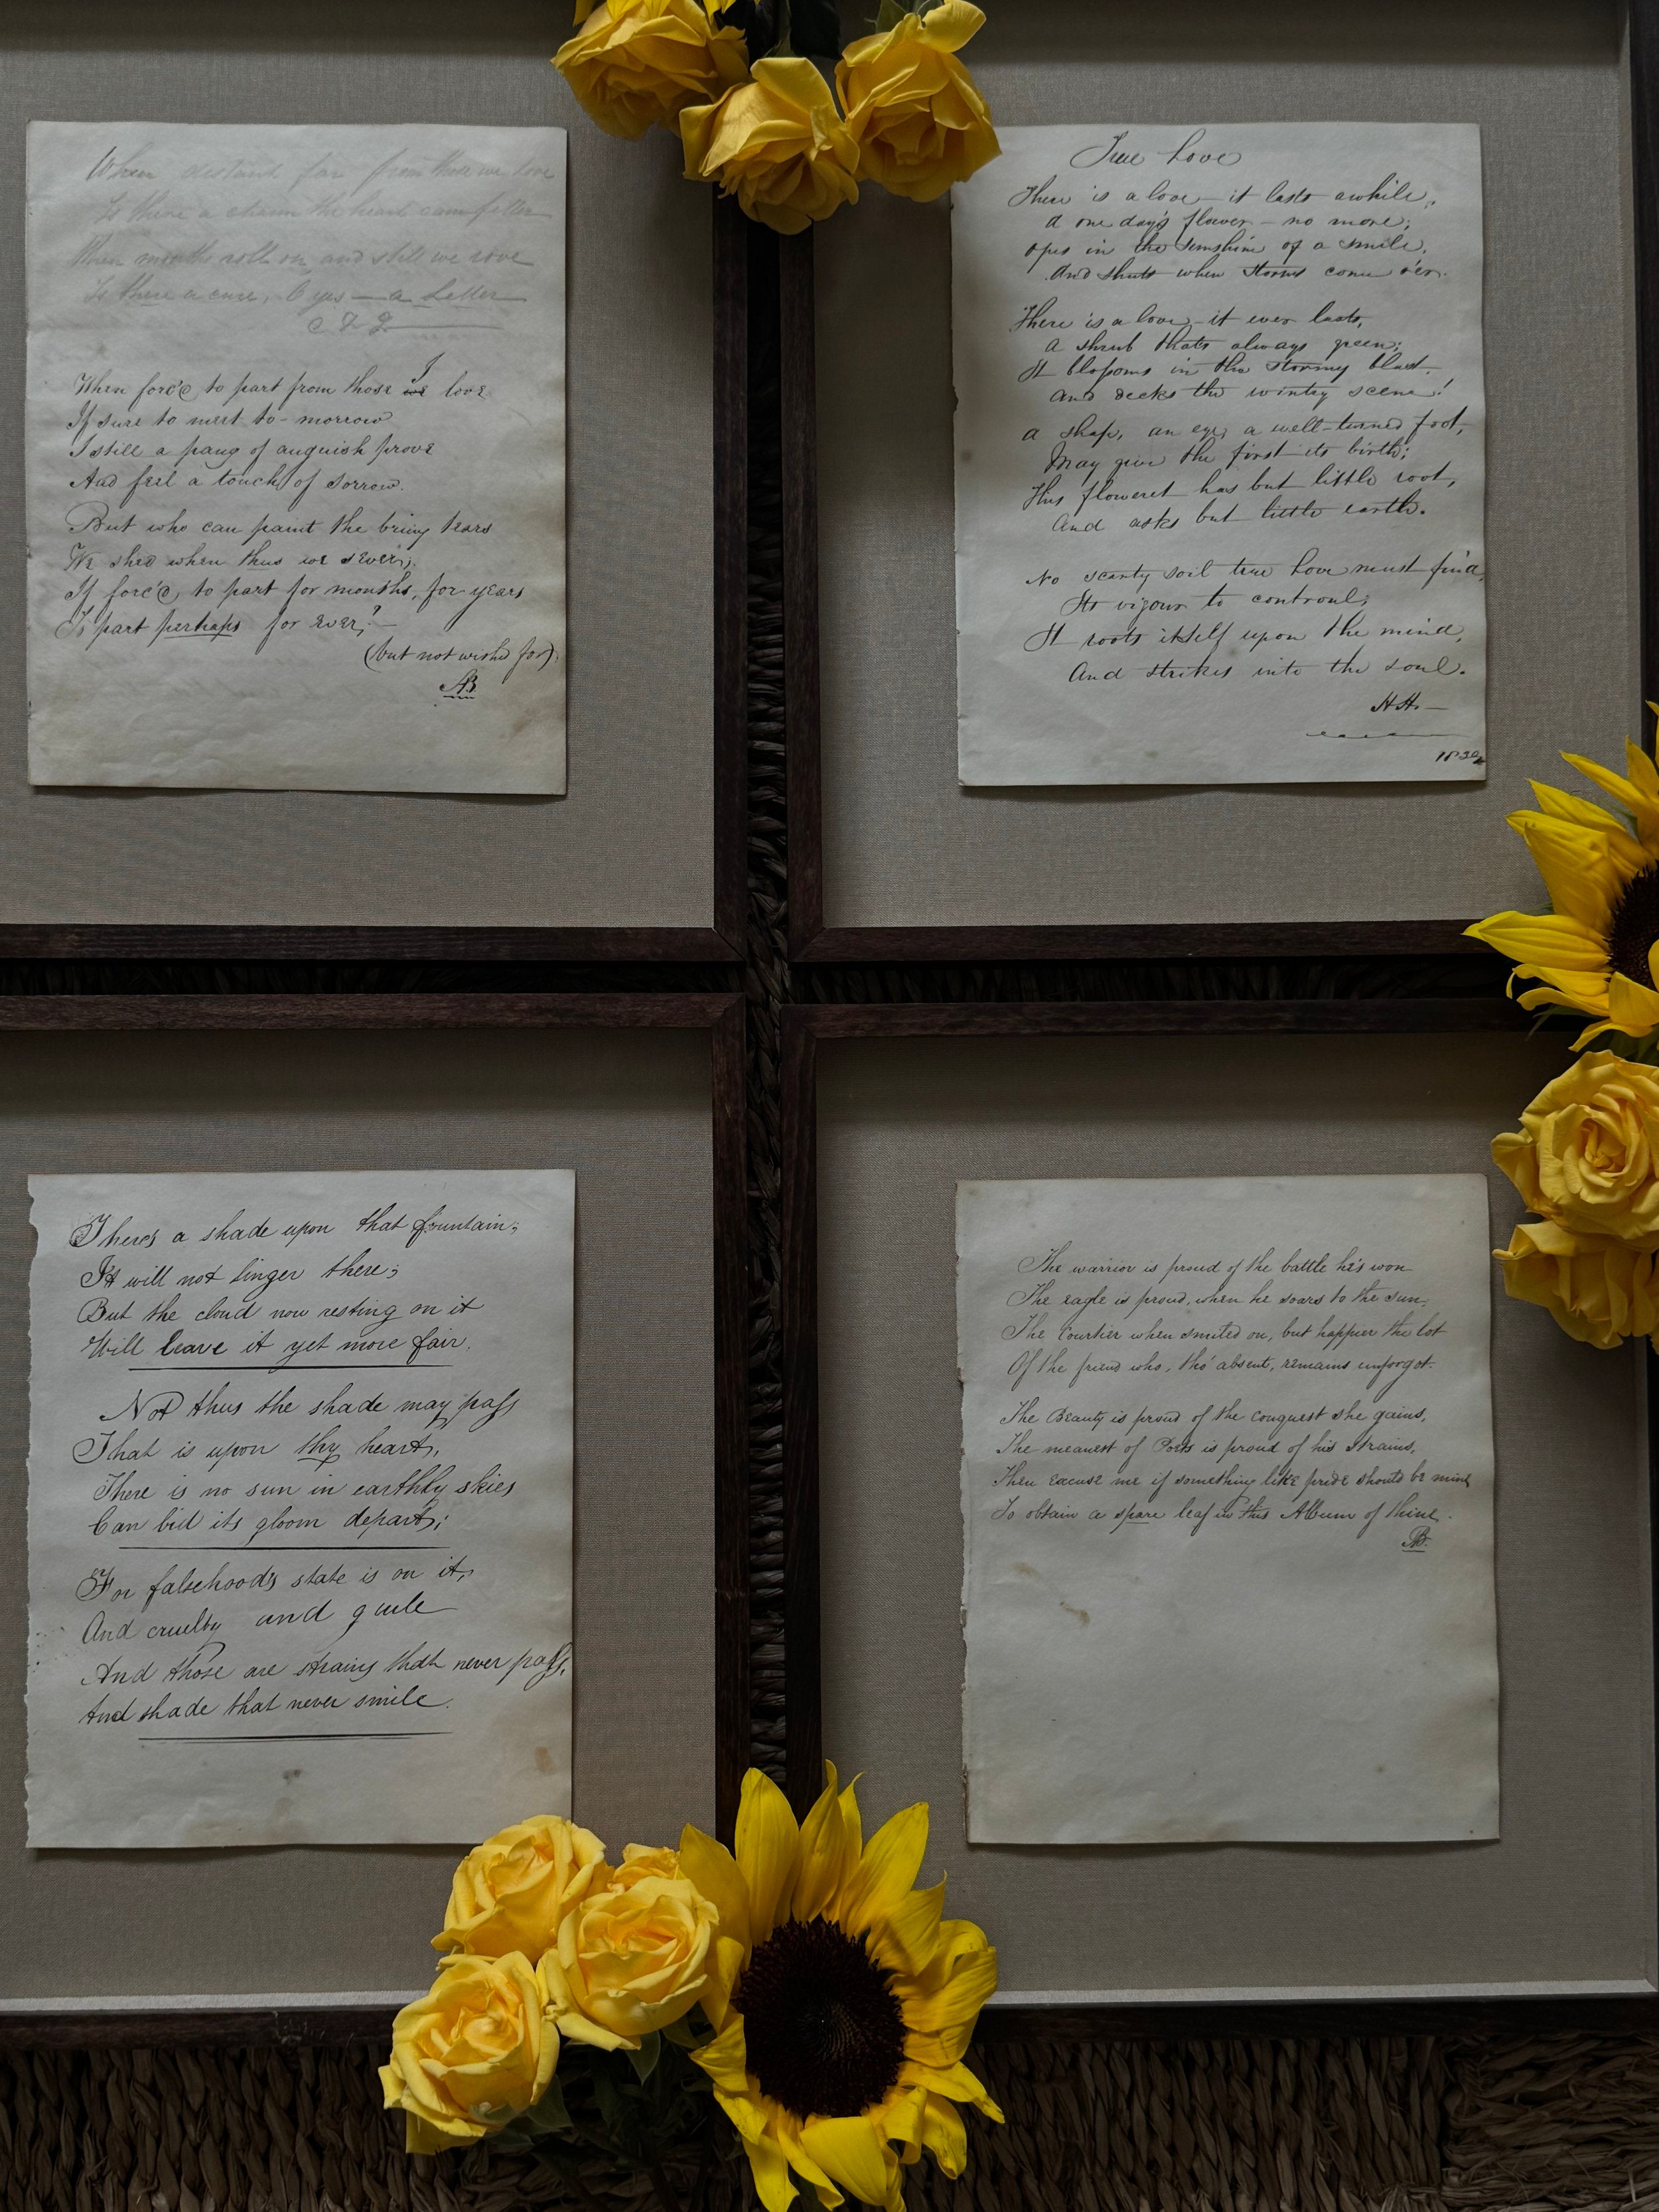 When distant far from those we love
Is there a charm the heart can fetter
When months roll on and still we rove
Is there a cure, O yes — a Letter
When forc'd to part from those we I love
If sure to meet to-morrow
I still a pang of anguish prove
And feel a touch of sorrow.
But who can paint the briny tears
We shed when thus we sever;
If forc'd, to part for months, for years
To part perhaps for ever? —
(but not wish'd for).
AB.
True Love
There is a love – it lasts awhile,
A one day's flower – no more;
opes in the sunshine of a smile,
And shuts when storms come o'er.
There is a love – it ever lasts,
A shrub thats always green;
It blossoms in the stormy blast,
And decks the wintry scene!
A shape, an eye, a well-turned foot,
May give the first its birth;
This floweret has but little root,
And asks but little earth.
No scanty soil true Love must find,
Its vigour to controul;
It roots itself upon the mind,
And strikes into the soul.
HH. —
There's a shade upon that fountain;
It will not linger there;
But the cloud now resting on it
Will leave it yet more fair.
Not thus the shade may pass
That is upon thy heart,
There is no sun in earthly skies
Can bid its gloom depart;
For falsehood's state is on it,
And cruelty and guile
And those are strains that never pass,
And shade that never smile.
The warrior is proud of the battle he's won
The eagle is proud, when he soars to the sun,
The Courtier when smiled on, but happier the lot
Of the friend who, tho' absent, remains unforgot.
The Beauty is proud of the conquest she gains,
The meanest of Poets is proud of his strains,
Then excuse me if something like pride should be mine
To obtain a spare leaf in this Album of thine.
AB.